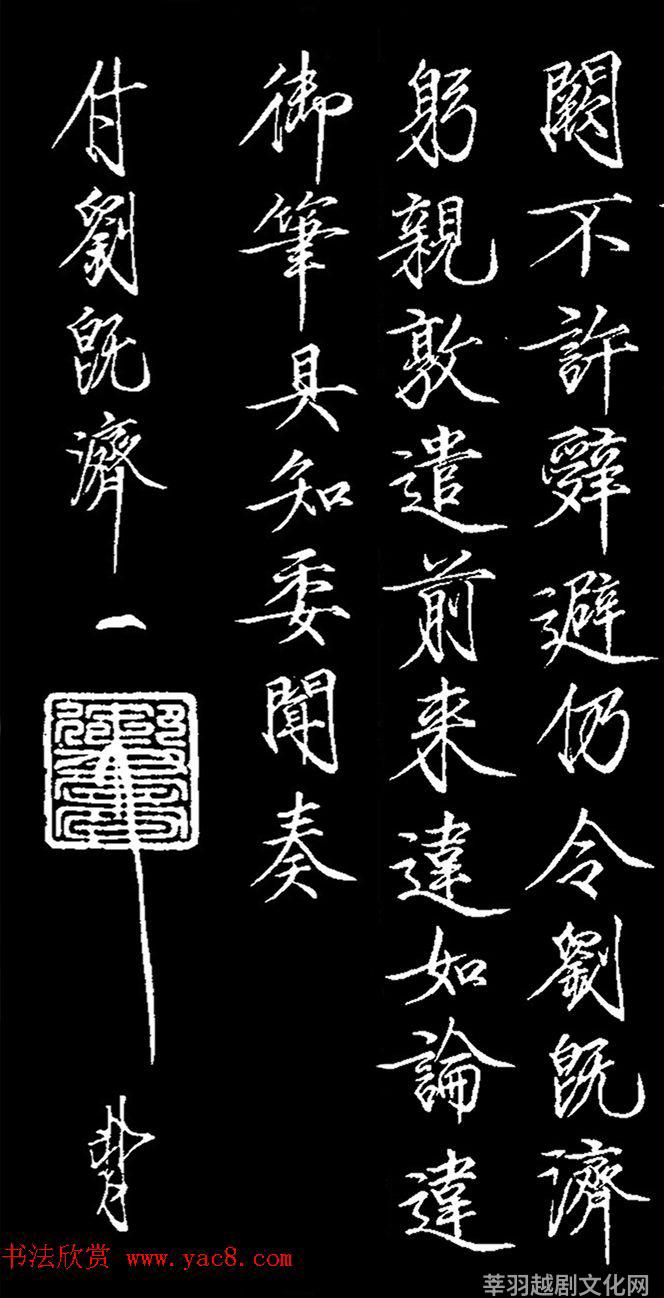 闕不許辭避仍令劉既濟
躬親敦遣前来違如論違
御筆具知委聞奏
付劉既濟 一
书法欣赏 www.yac8.com
莘羽越剧文化网